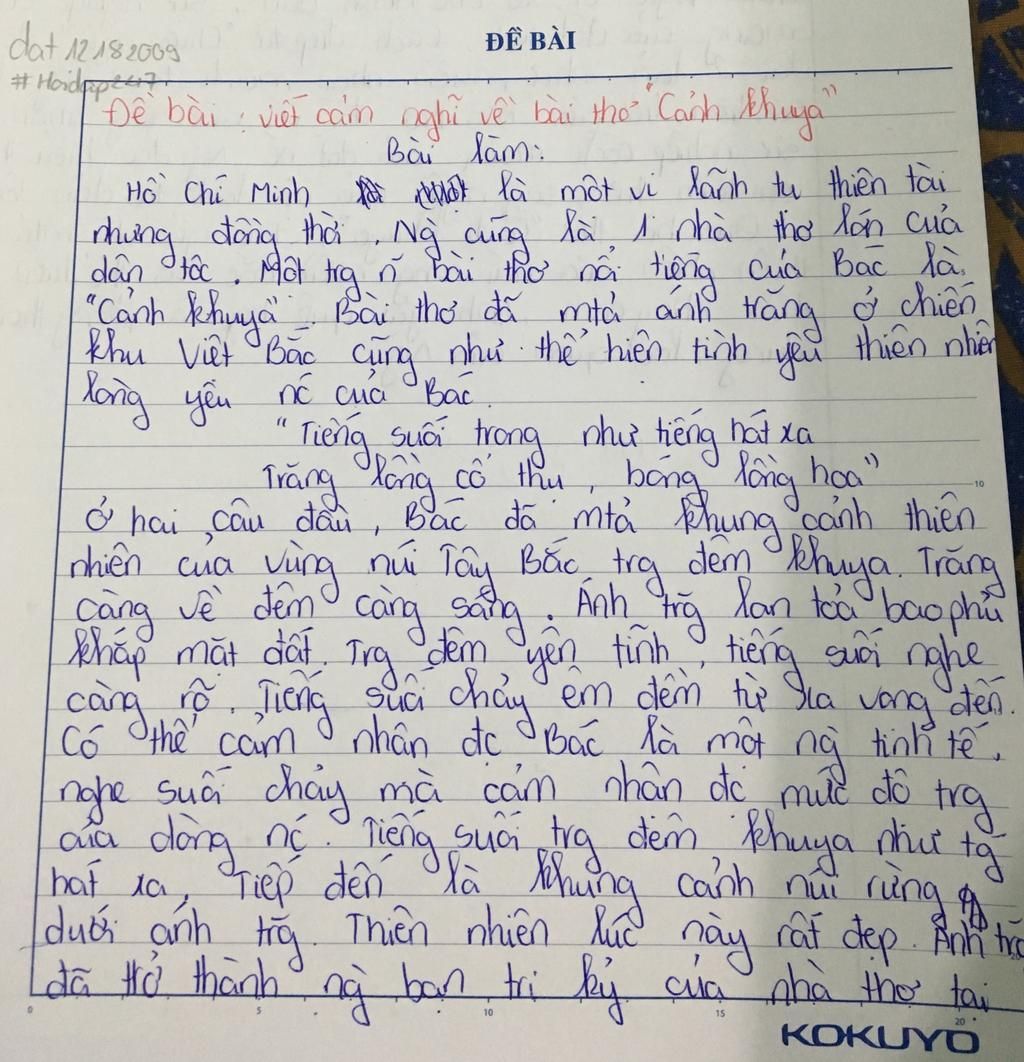 dat 12182009
#Hoidap247
ĐỀ BÀI
Đề bài: viết cảm nghĩ về bài thơ "Cảnh khuya"
Bài làm:
Hồ Chí Minh là một vị lãnh tụ thiên tài
nhưng đồng thời, Ng cũng là 1 nhà thơ lớn của
dân tộc. Một trg n~ bài thơ nổi tiếng của Bác là
"Cảnh khuya". Bài thơ đã mtả ánh trăng ở chiến
khu Việt Bắc cũng như thể hiện tình yêu thiên nhiên
lòng yêu nc của Bác.
"Tiếng suối trong như tiếng hát xa
Trăng lồng cổ thụ, bóng lồng hoa"
10
Ở hai câu đầu, Bác đã mtả khung cảnh thiên
nhiên của vùng núi Tây Bắc trg đêm khuya. Trăng
càng về đêm càng sáng. Ánh trg lan toả bao phủ
khắp mặt đất. Trg đêm yên tĩnh, tiếng suối nghe
càng rõ. Tiếng suối chảy êm đềm từ xa vọng đến.
Có thể cảm nhận đc Bác là một ng tinh tế,
nghe suối chảy mà cảm nhận đc mức độ trg
của dòng nc. Tiếng suối trg đêm khuya như tg
hát xa, Tiếp đến là khung cảnh núi rừng
dưới ánh trg. Thiên nhiên lúc này rất đẹp. Ánh tr
đã trở thành ng bạn tri kỷ của nhà thơ tại
0 5 10 15 20
KOKUYO